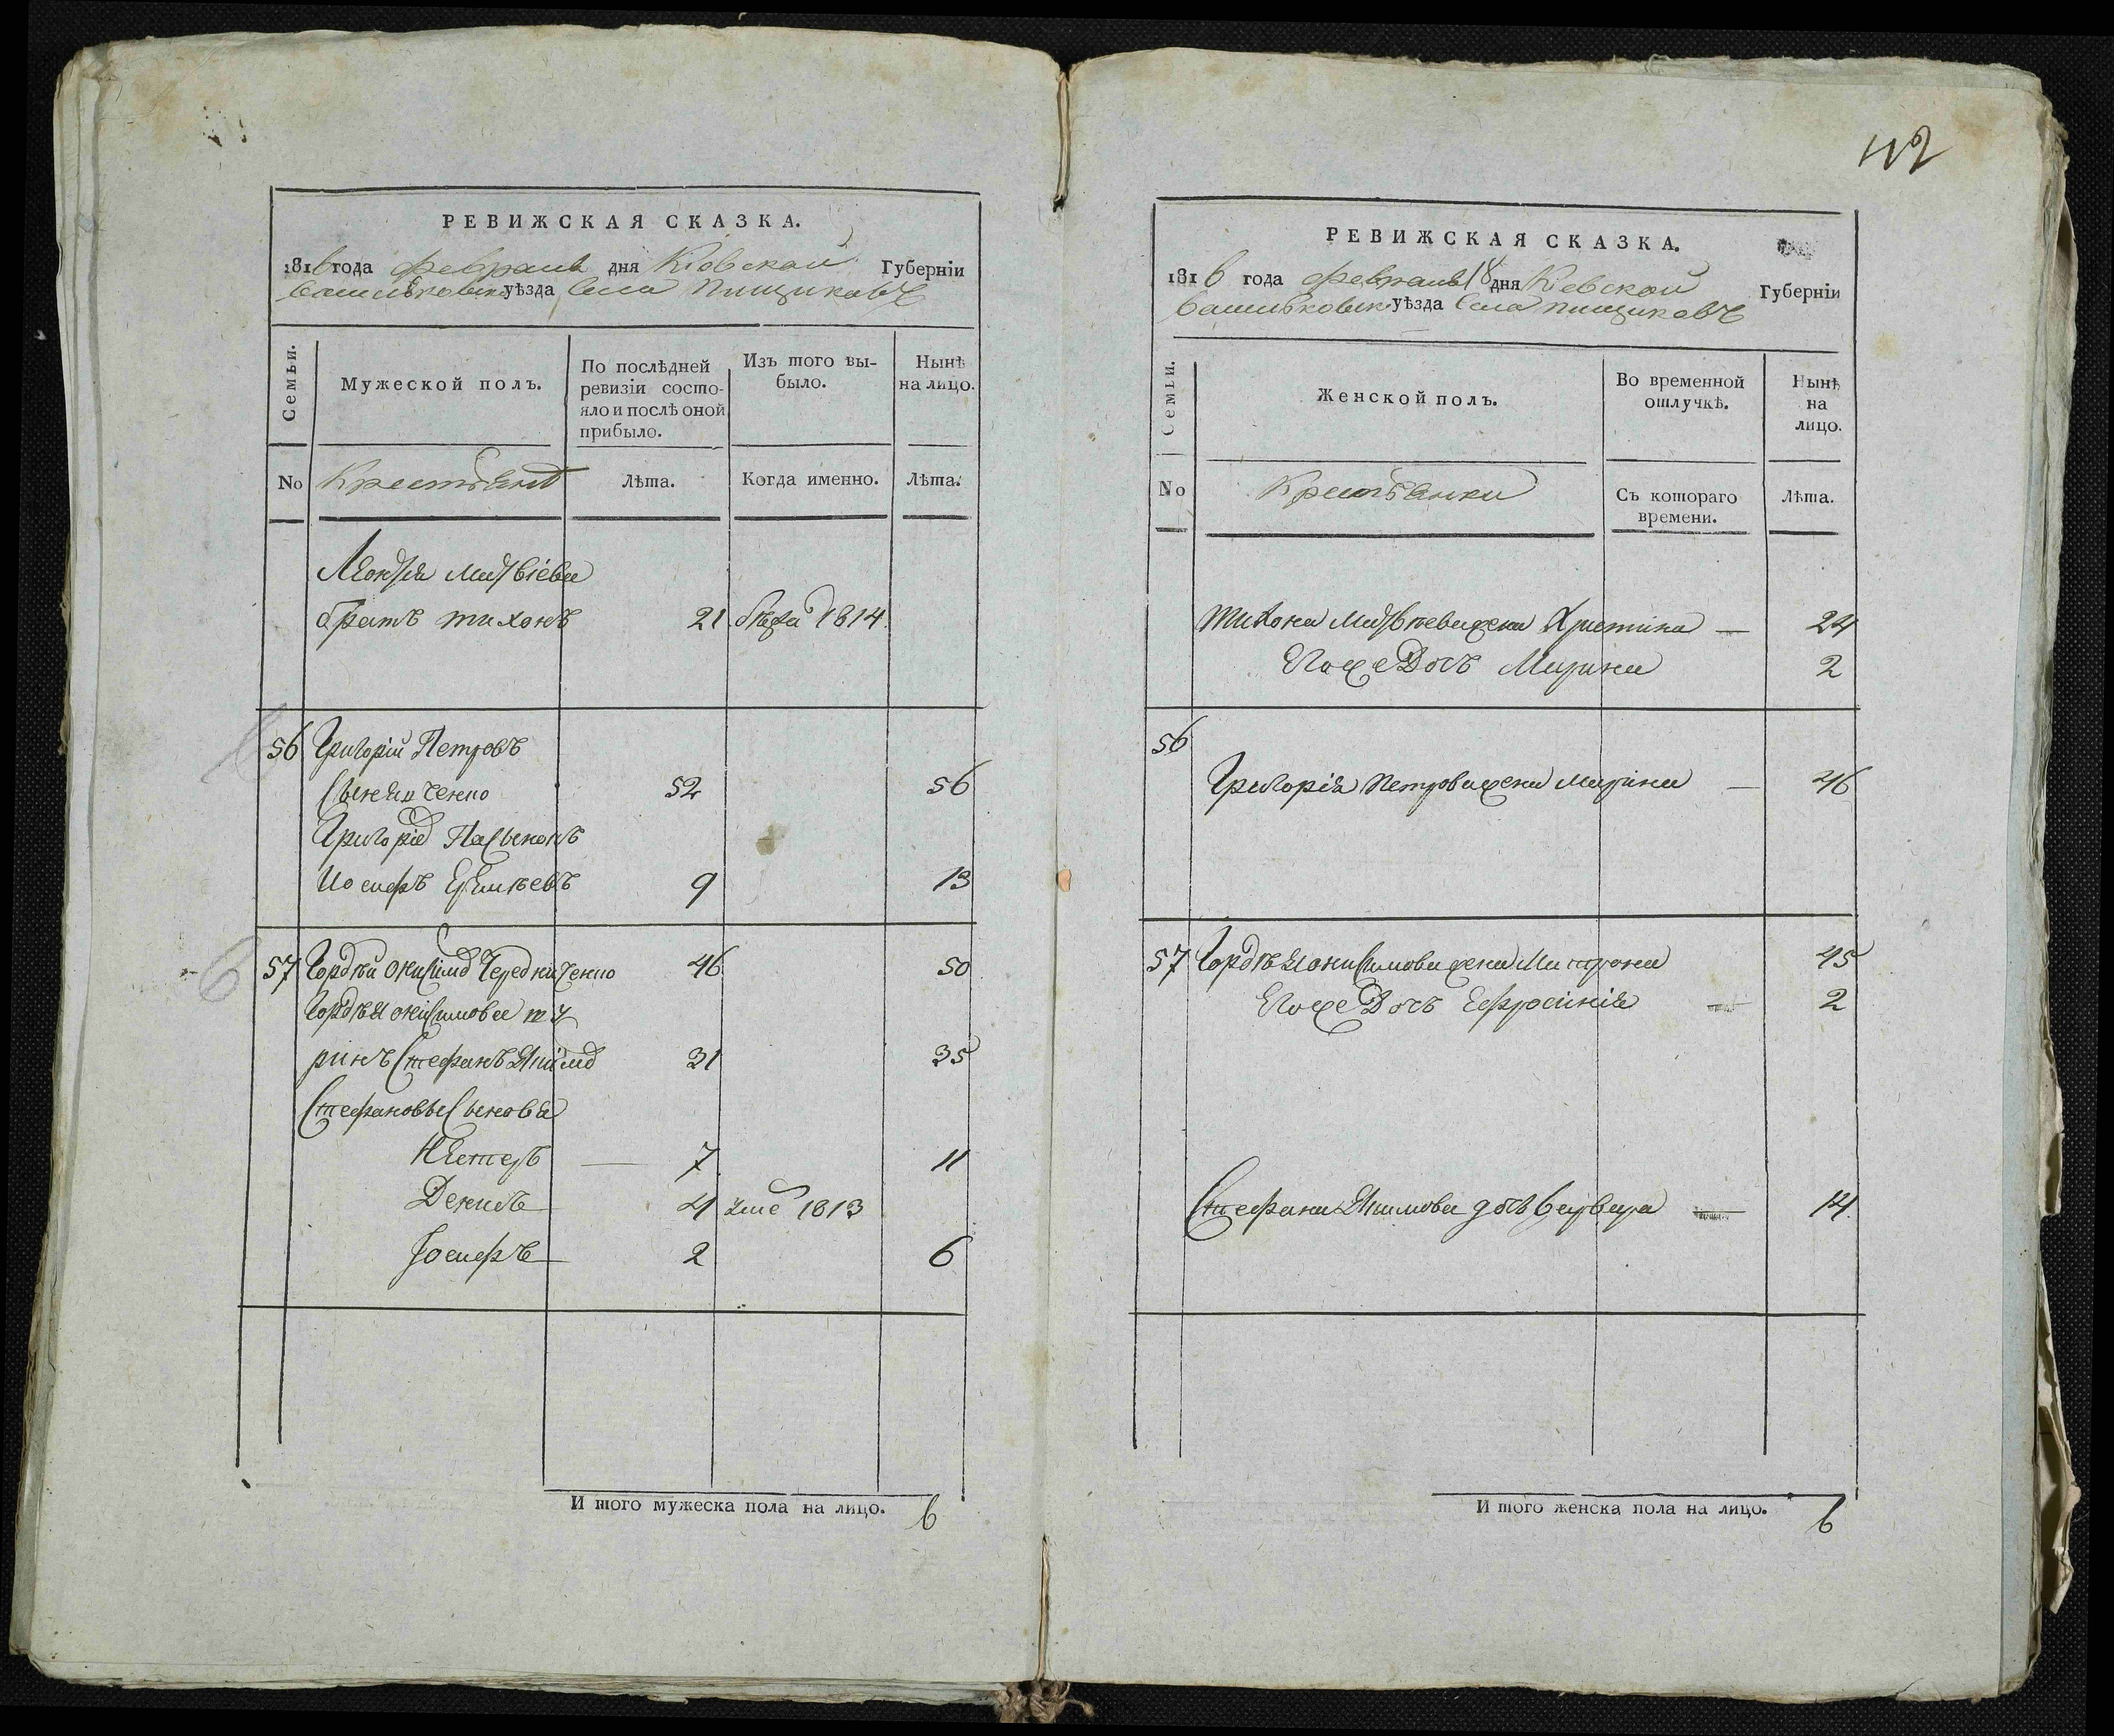 РЕВИЖСКАЯ СКАЗКА.
1816 года февраля дня Кіевской Губерніи
Васильковского уѣзда Села Пищиковъ
Семьи.
Мужеской полъ.
По послѣдней ревизіи состо-
яло и послѣ оной прибыло.
Изъ того вы-
было.
Нынѣ
на лицо.
No
Крестьянъ
Лѣта.
Когда именно.
Лѣта.
брать тихонъ 21 бѣжа 1814
56 Григорій Петровъ
52 56
Григорія Пасынокъ
Иосифъ 9 13
57 Гордѣй Чередниченко 46 50
Гордѣя шу
ринъ Стефанъ 31 35
Стефановы Сыновья
Нестеръ 7 11
Денисъ 4 уме 1813
Іосифъ 2 6
И того мужеска пола на лицо. 6
42
РЕВИЖСКАЯ СКАЗКА.
1816 года февраля 18 дня Кіевской Губерніи
Васильковск уѣзда Села пищиковъ
Семьи.
Женской полъ.
Во временной
отлучкѣ.
Нынѣ
на
лицо.
No
Крестьянки
Съ котораго
времени.
Лѣта.
Тихона Матвѣева жена Христина 24
Егоже Дочъ Марина 2
56
Григорія Петрова жена Марина 46
57 Гордѣя жена Матрона 45
Егоже Дочъ Ефросинія 2
Стефана дочь Варвара 14
И того женска пола на лицо. 6